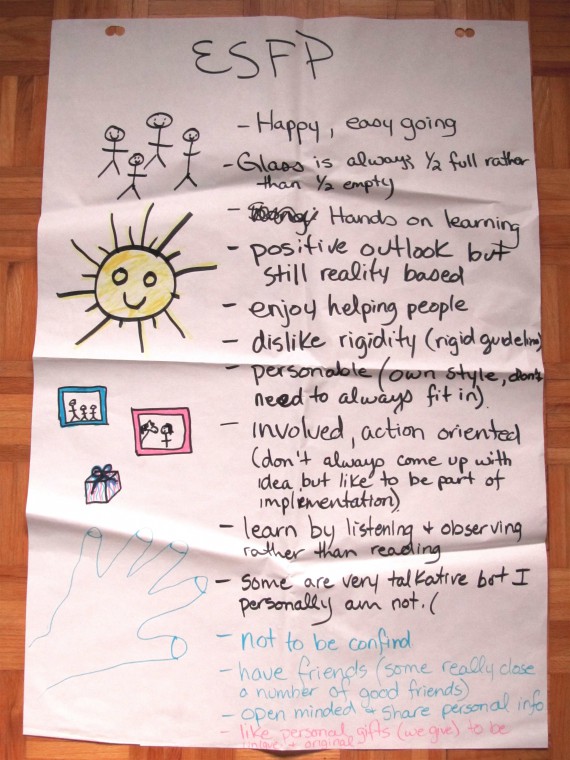 ESFP
- Happy, easy going
- Glass is always 1/2 full rather
than 1/2 empty
- Hands on learning
- positive outlook but
still reality based
- enjoy helping people
- dislike rigidity (rigid guidelines)
- personable (own style, don't
need to always fit in)
- involved, action oriented
(don't always come up with
idea but like to be part of
implementation)
- learn by listening + observing
rather than reading
- some are very talkative but I
personally am not.(
- not to be confind
- have friends (some really close
a number of good friends)
- open minded + share personal info
- like personal gifts (we give) to be
unique + original